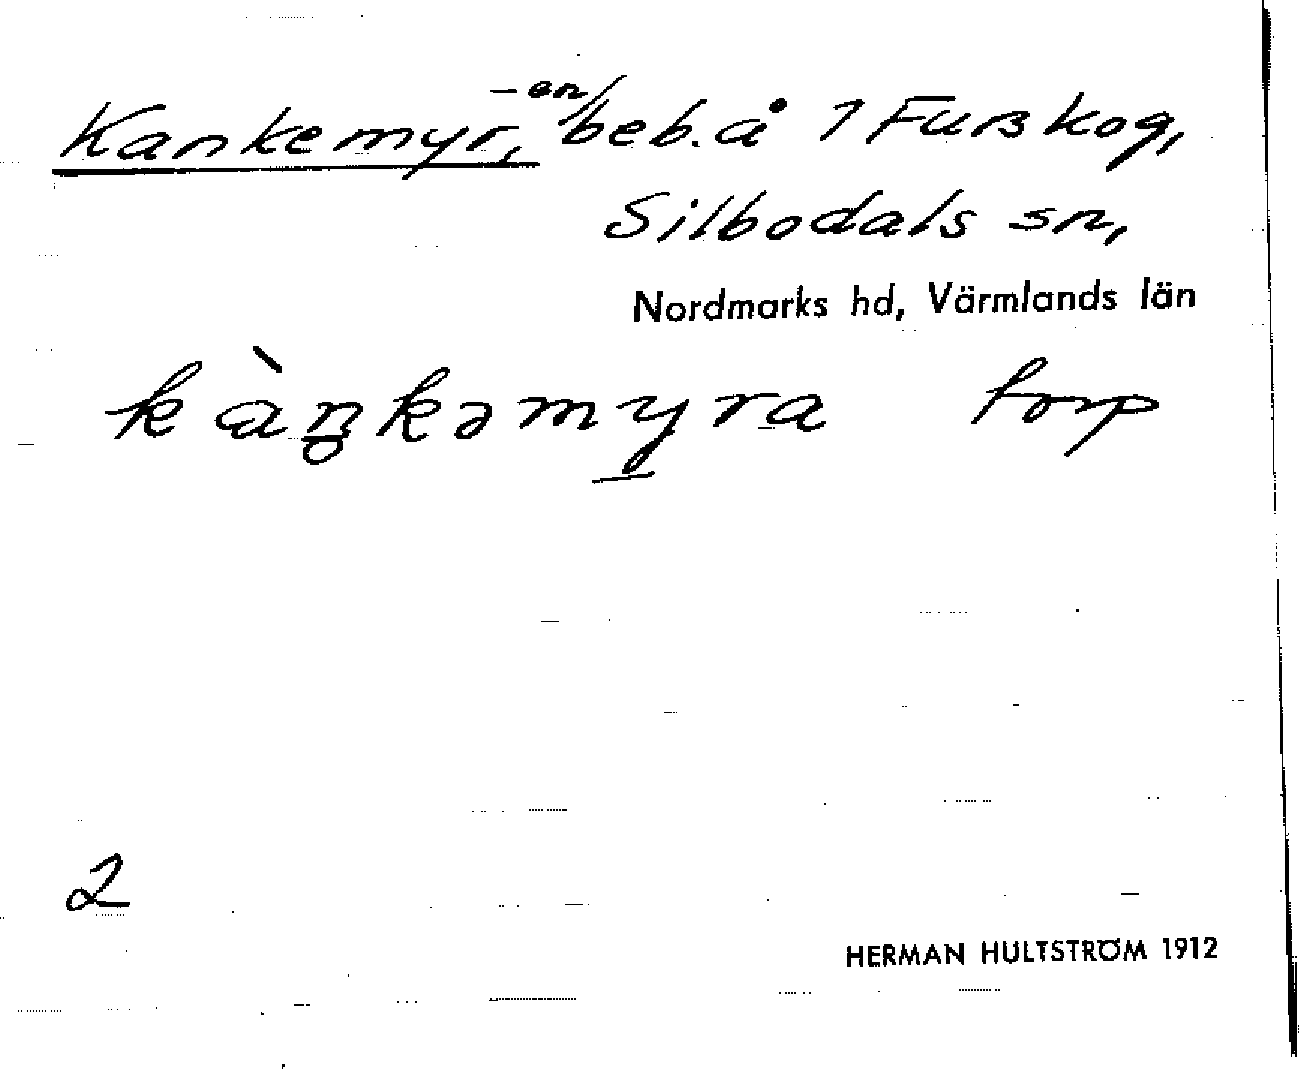 Kankemyr, -en, beb. å 1 Furskog,
Silbodals sn,
Nordmarks hd, Värmlands län
kàŋkəmyra torp
2
HERMAN HULTSTRÖM 1912